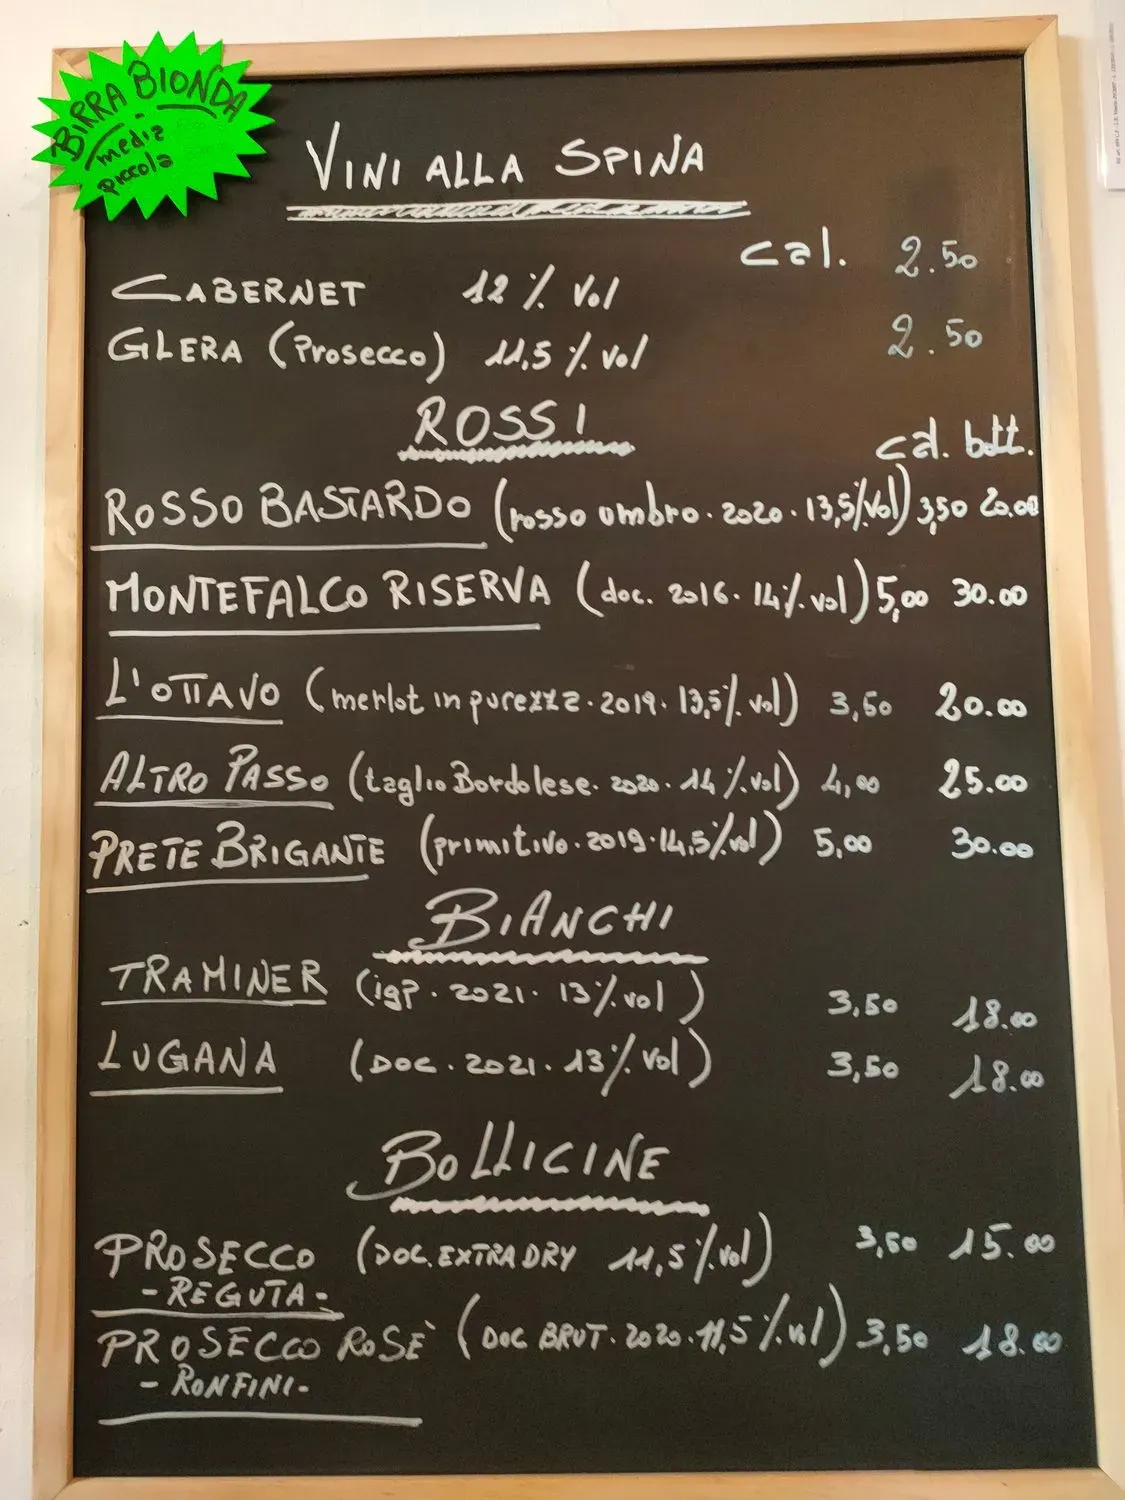 BIRRA BIONDA
media
piccola
VINI ALLA SPINA
cal.
CABERNET 12% Vol 2.50
GLERA (Prosecco) 11,5% vol 2.50
ROSSI
cal. bott.
ROSSO BASTARDO (rosso umbro. 2020. 13,5% Vol) 3,50 20.00
MONTEFALCO RISERVA (doc. 2016. 14% vol) 5,00 30.00
L'OTTAVO (merlot in purezza. 2019. 13,5% vol) 3,50 20.00
ALTRO PASSO (taglio Bordolese. 2020. 14% vol) 4,00 25.00
PRETE BRIGANTE (primitivo. 2019. 14,5% vol) 5,00 30.00
BIANCHI
TRAMINER (igp. 2021. 13% vol) 3,50 18.00
LUGANA (DOC. 2021. 13% vol) 3,50 18.00
BOLLICINE
PROSECCO (DOC. EXTRA DRY 11,5% vol) 3,50 15.00
- REGUTA -
PROSECCO ROSÈ (DOC BRUT. 2020. 11,5% vol) 3,50 18.00
- RONFINI -